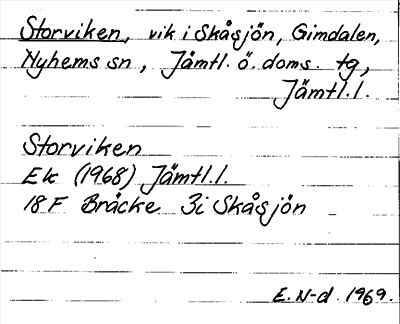 Storviken, vik i Skåsjön, Gimdalen,
Nyhems sn, Jämtl. ö. doms. tg,
Jämtl.l.
Storviken
Ek (1968) Jämtl.l.
18F Bräcke 3i Skåsjön
E. N-d. 1969.